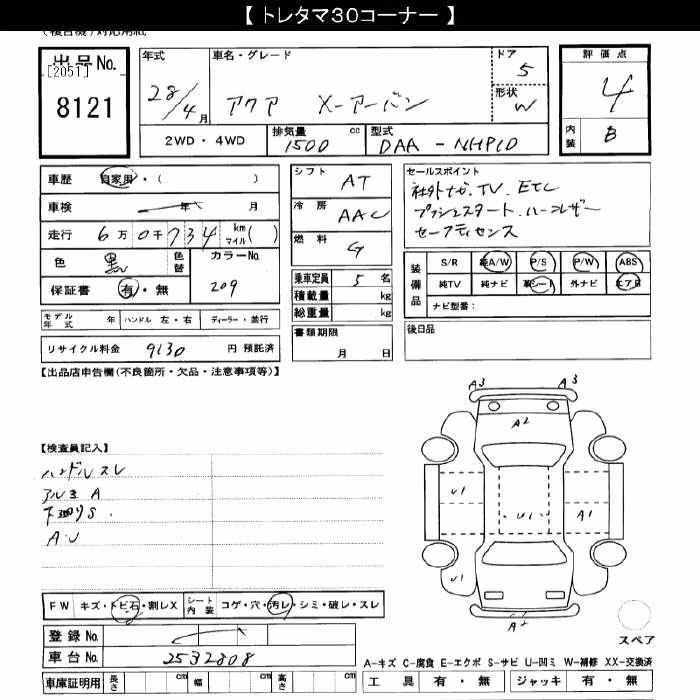 【 トレタマ30コーナー 】
出品No.
[2051]
8121
年式
28/4月
車名・グレード
アクア X-アーバン
ドア
5
形状
W
評価点
4
内装
B
2WD・4WD
排気量
1500 cc
型式
DAA - NHP10
車歴 自家用・( )
車検 年 月
走行 6万0千734 km マイル( )
色 黒
色替
カラーNo.
209
保証書 有・無
シフト AT
冷房 AAC
燃料 G
乗車定員 5 名
積載量 kg
総重量 kg
書類期限
月 日
セールスポイント
社外ナビ.TV.ETC
プッシュスタート.ハーフレザー
セーフティセンス
装備品
S/R 純A/W P/S P/W ABS
純TV 純ナビ 革シート 外ナビ エアB
ナビ型番:
後日品
モデル年式 年 ハンドル 左・右 ディーラー・並行
リサイクル料金 9130 円 預託済
【出品店申告欄(不良箇所・欠品・注意事項等)】
【検査員記入】
ハンドルスレ
アルミ A
下廻りS.
A.U
A3 A3
A2
U1 U1 A1
U1
A2
スペア
FW キズ・トビ石・割レX
シート内装 コゲ・穴・汚レ・シミ・破レ・スレ
登録No.
車台No. 2532808
車庫証明用 長さ cm 幅 cm 高さ cm
A-キズ C-腐食 E-エクボ S-サビ U-凹ミ W-補修 XX-交換済
工具 有・無 ジャッキ 有・無